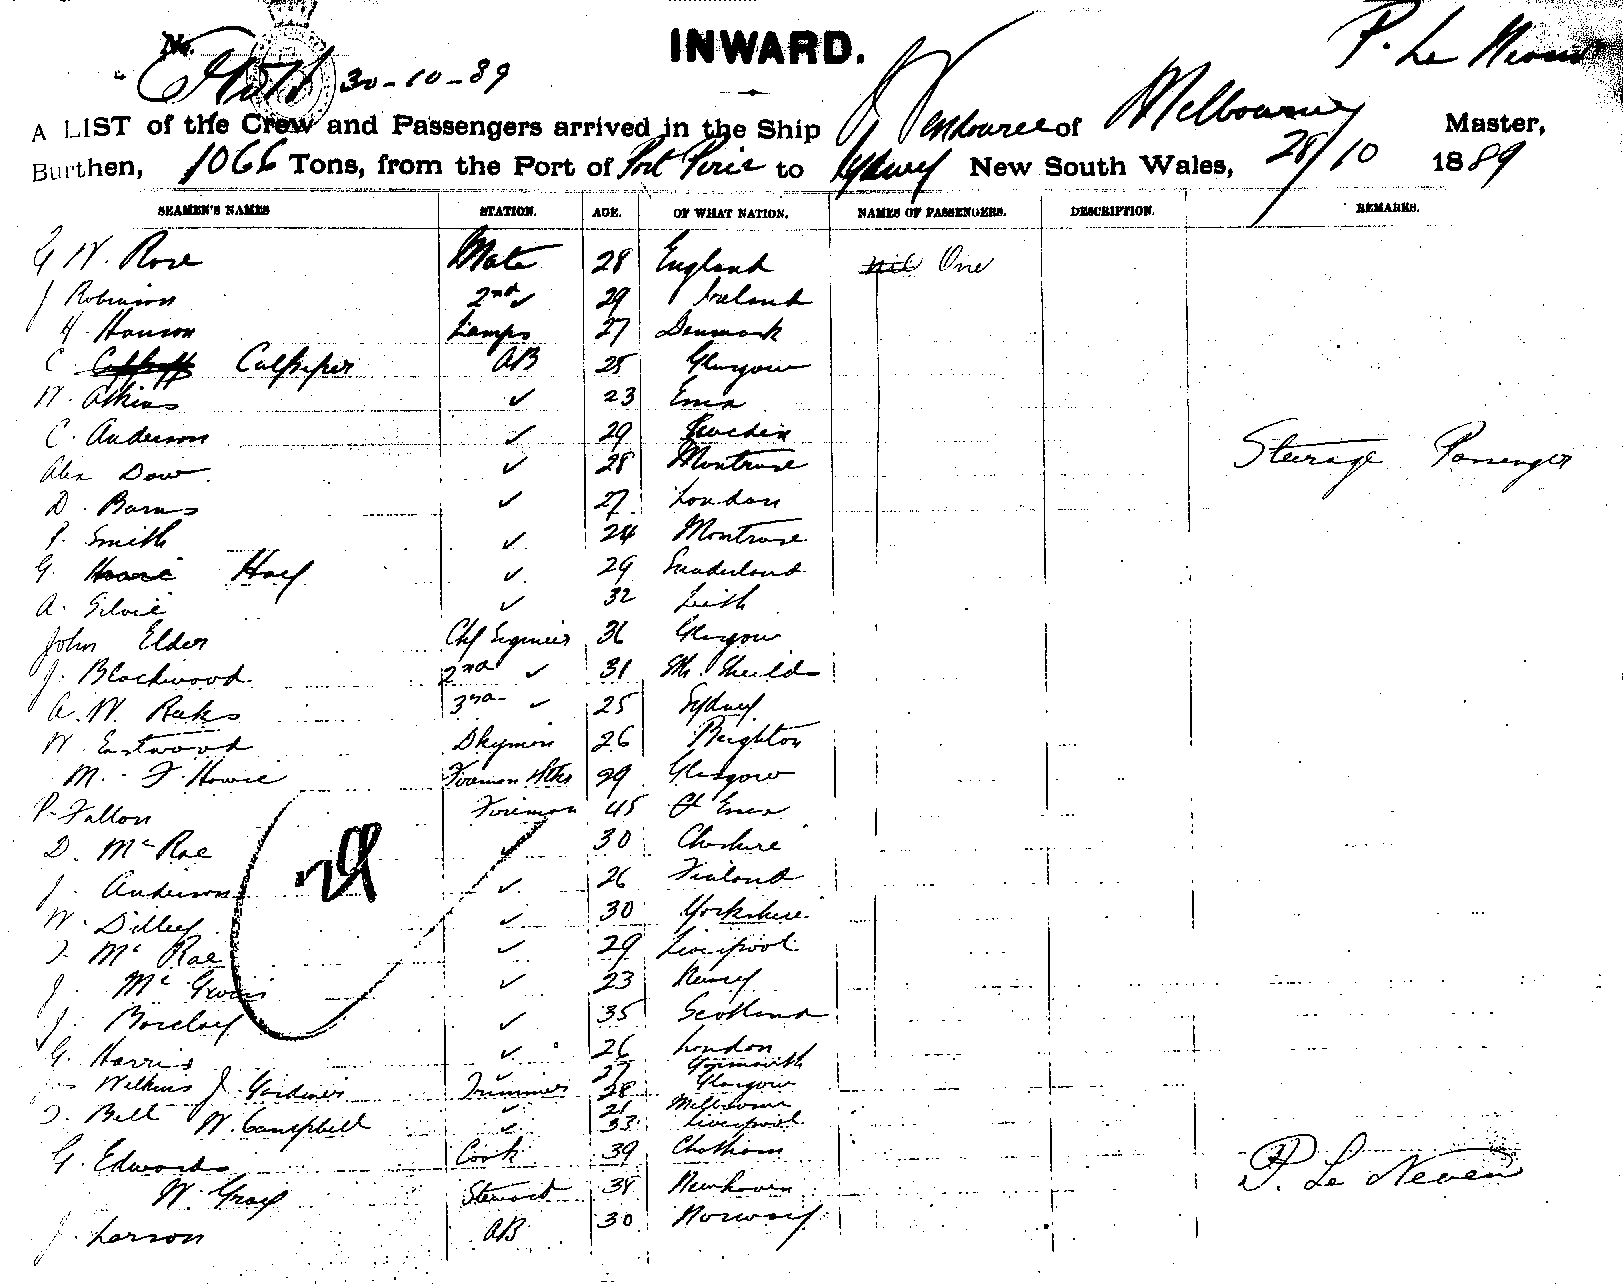 No.
INWARD.
P. Le Neven
30-10-89
A LIST of the Crew and Passengers arrived in the Ship Wendouree of Melbourne Master,
Burthen, 1066 Tons, from the Port of Port Pirie to Sydney New South Wales, 28/10 1889
SEAMEN'S NAMES STATION. AGE. OF WHAT NATION. NAMES OF PASSENGERS. DESCRIPTION. REMARKS.
G W. Rose Mate 28 England nil One
J Robinson 2nd ✓ 29 Ireland
H. Hanson Lamps 27 Denmark
C. Culpeper AB 25 Glasgow
W. Atkins ✓ 23
C. Anderson ✓ 29 Sweden
Alex Dow ✓ 28 Montrose Steerage Passenger
D. Barns ✓ 27 London
P. Smith ✓ 24 Montrose
G. Howie Hay ✓ 29 Sunderland
A. Silvie ✓ 32 Leith
John Elder Chf Engineer 36 Glasgow
J. Blackwood 2nd ✓ 31 Sth Sheilds
A. W. Raks 3rd ✓ 25 Sydney
W. Eastwood Dkyman 26 Brighton
M. F Howie Foreman 29 Glasgow
P. Fallon Fireman 45
D. McRae ✓ 30 Cheshire
J. Anderson ✓ 26 Finland
W. Dilley ✓ 30 Yorkshire
J. Mc Rae ✓ 29 Liverpool
J. Mc ✓ 23
J. Barclay ✓ 35 Scotland
G. Harris ✓ 26 London
Wilkins ✓ 27 Yarmouth
J. Gardiner Trimmer 28 Glasgow
J. Bell ✓ 21 Melbourne
W. Campbell ✓ 33 Liverpool
G. Edwards Cook 39 Chatham
W. Gray Steward 38 Newhaven
J. Larson AB 30 Norway
P. Le Neven